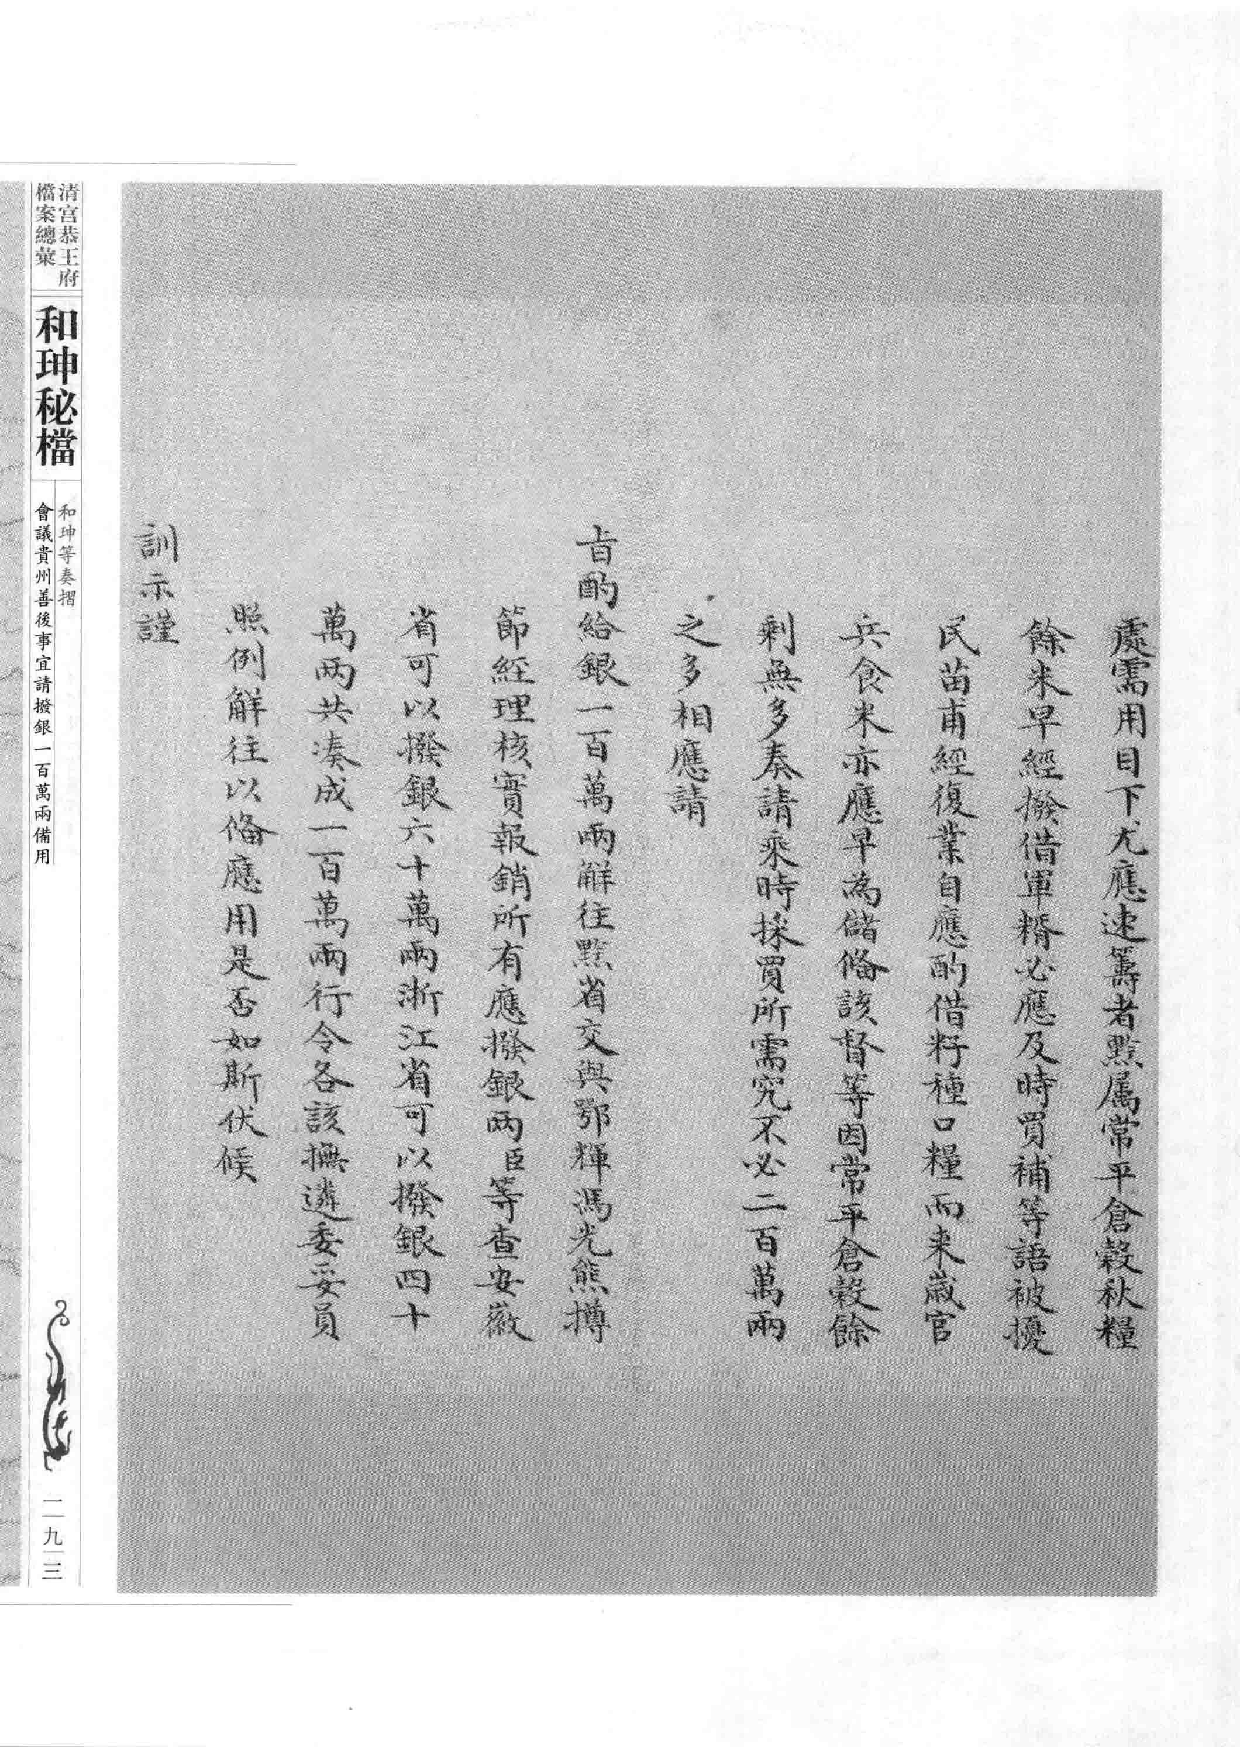 處需用目下尤應速籌者黔属常平倉穀秋糧
餘米早經撥借軍糈必應及時買補等語被擾
民苗甫經復業自應酌借籽種口糧而来歲官
兵食米亦應早為儲偹該督等因常平倉穀餘
剩無多奏請乘時採買所需究不必二百萬兩
之多相應請
旨酌給銀一百萬兩觧往黔省交與鄂輝馮光熊撙
節經理核實報銷所有應撥銀兩臣等查安徽
省可以撥銀六十萬兩浙江省可以撥銀四十
萬兩共凑成一百萬兩行令各該撫遴委妥員
照例觧往以偹應用是否如斯伏候
訓示謹
清宫恭王府
檔案總彙
和珅秘檔
和珅等奏摺
會議貴州善後事宜請撥銀一百萬兩備用
二九三